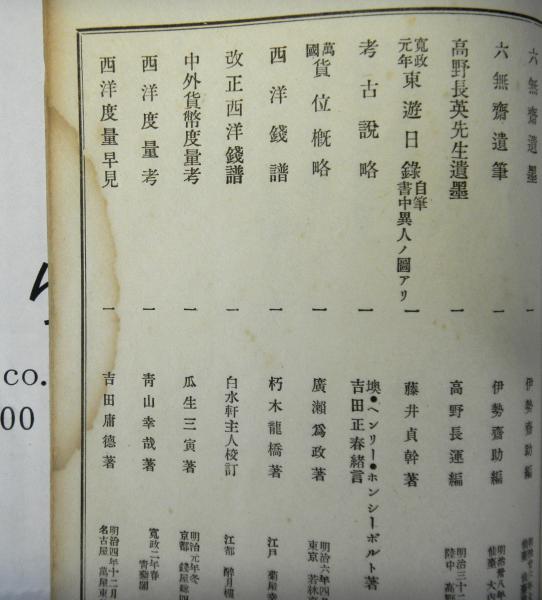 六無齋遺墨 一 伊勢齋助編
六無齋遺筆 一 伊勢齋助編 明治卅八年 仙臺 大內
高野長英先生遺墨 一 高野長運編 明治三十二 陸中 高野
寬政元年 東遊日錄 自筆書中異人ノ圖アリ 一 藤井貞幹著
考古說略 一 墺●ヘンリー●ホンシーボルト著 吉田正春緒言
萬國貨位槪略 一 廣瀨爲政著 明治六年四 東京 若林
西洋錢譜 一 朽木龍橋著 江戶
改正西洋錢譜 一 白水軒主人校訂 江都 醉月樓
中外貨幣度量考 一 瓜生三寅著 明治元年冬 京都 錢屋
西洋度量考 一 靑山幸哉著 寬政二年春
西洋度量早見 一 吉田庸德著 明治四年十二月 名古屋 萬屋東
co.
00